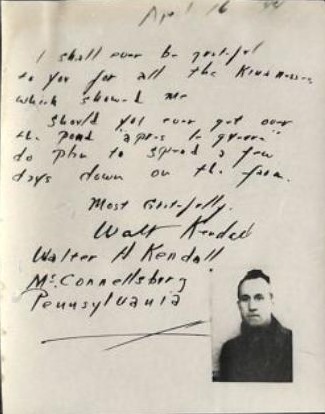 April 16 44
I shall ever be grateful
to you for all the Kindnesses
which showed me
Should you ever get over
the pond "apres la guerre"
do plan to spend a few
days down on the farm.
Most Gratefully,
Walt Kendall
Walter H Kendall
McConnellsburg
Pennsylvania